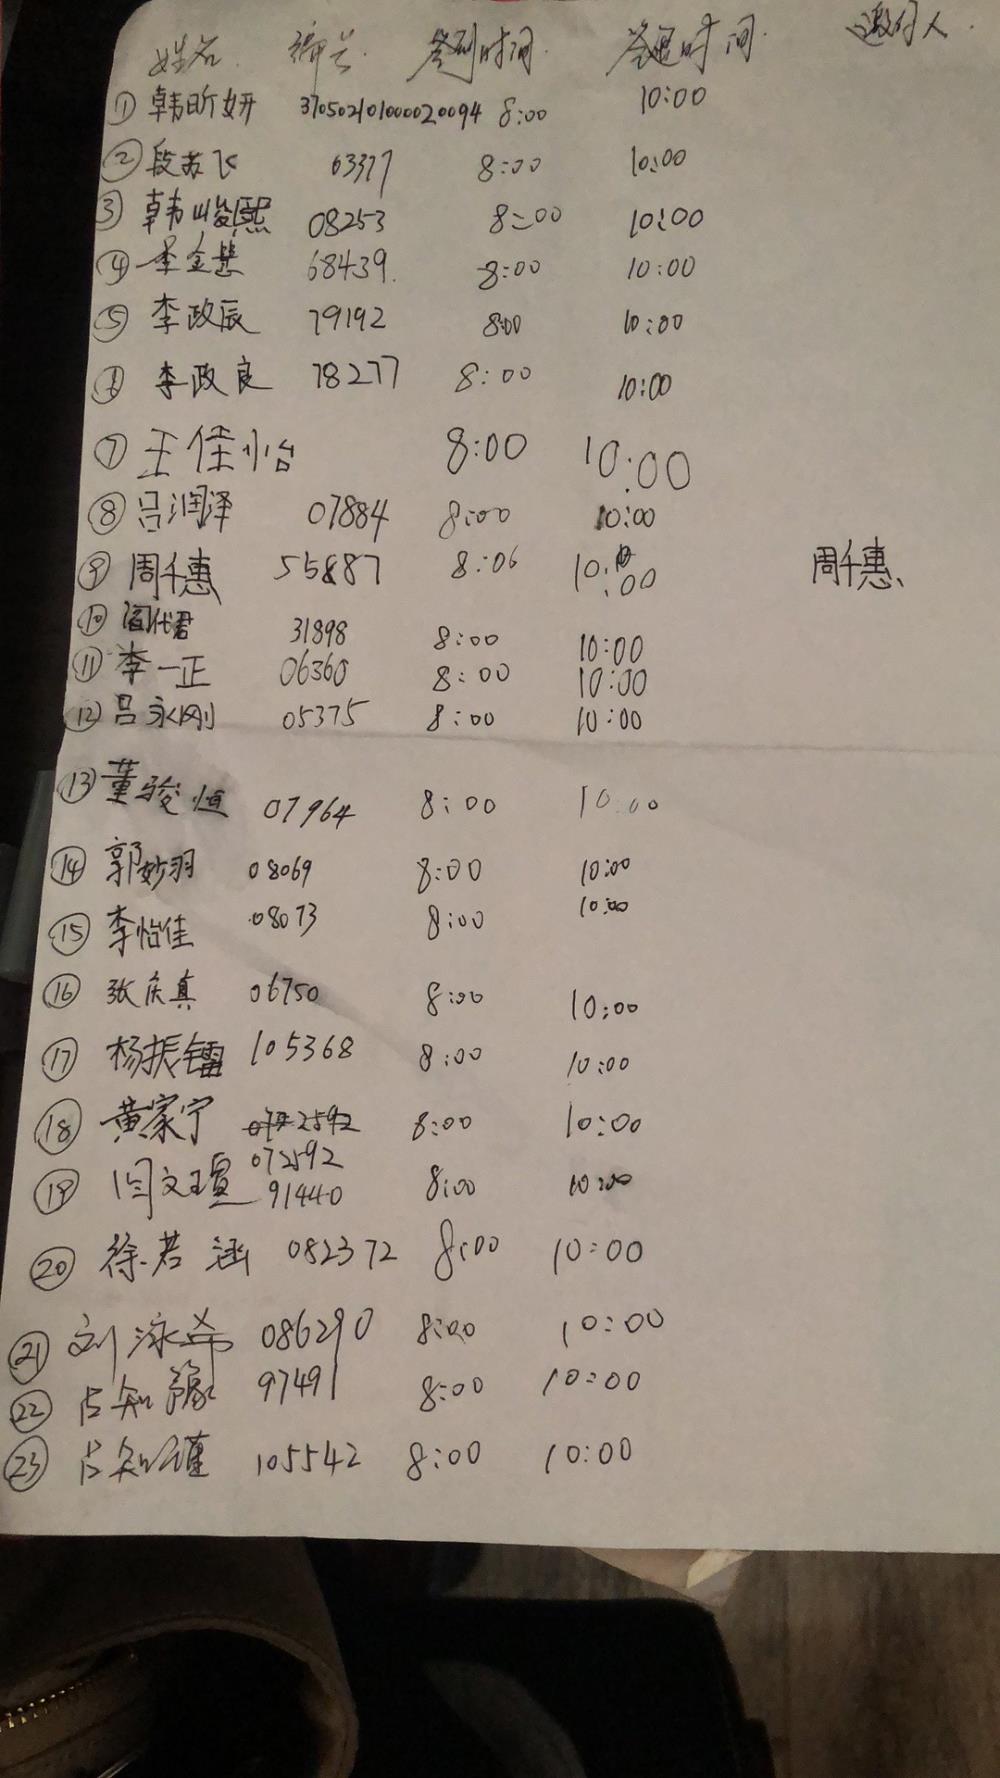 姓名 编号 签到时间 签退时间 邀约人
① 韩昕妍 370502101000020094 8:00 10:00
② 段苏飞 63377 8:00 10:00
③ 韩峻熙 08253 8:00 10:00
④ 李金慧 68439 8:00 10:00
⑤ 李政辰 79192 8:00 10:00
⑥ 李政良 78277 8:00 10:00
⑦ 王佳怡 8:00 10:00
⑧ 吕润泽 07884 8:00 10:00
⑨ 周千惠 55887 8:06 10:00 周千惠、
⑩ 阎代君 31898 8:00 10:00
⑪ 李一正 06360 8:00 10:00
⑫ 吕永刚 05375 8:00 10:00
⑬ 董骏恒 07964 8:00 10:00
⑭ 郭妙羽 08069 8:00 10:00
⑮ 李怡佳 08073 8:00 10:00
⑯ 张庆真 06750 8:00 10:00
⑰ 杨振镭 105368 8:00 10:00
⑱ 黄家宁 8:00 10:00
072592
⑲ 闫文瑄 91440 8:00 10:00
⑳ 徐若涵 082372 8:00 10:00
㉑ 刘泳希 086290 8:00 10:00
㉒ 占知豫 97491 8:00 10:00
㉓ 占知瑾 105542 8:00 10:00